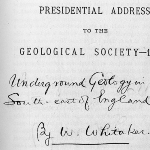 PRESIDENTIAL ADDRESS
TO THE
GEOLOGICAL SOCIETY—1
Underground Geology in
South-east of England
By W. Whitaker.